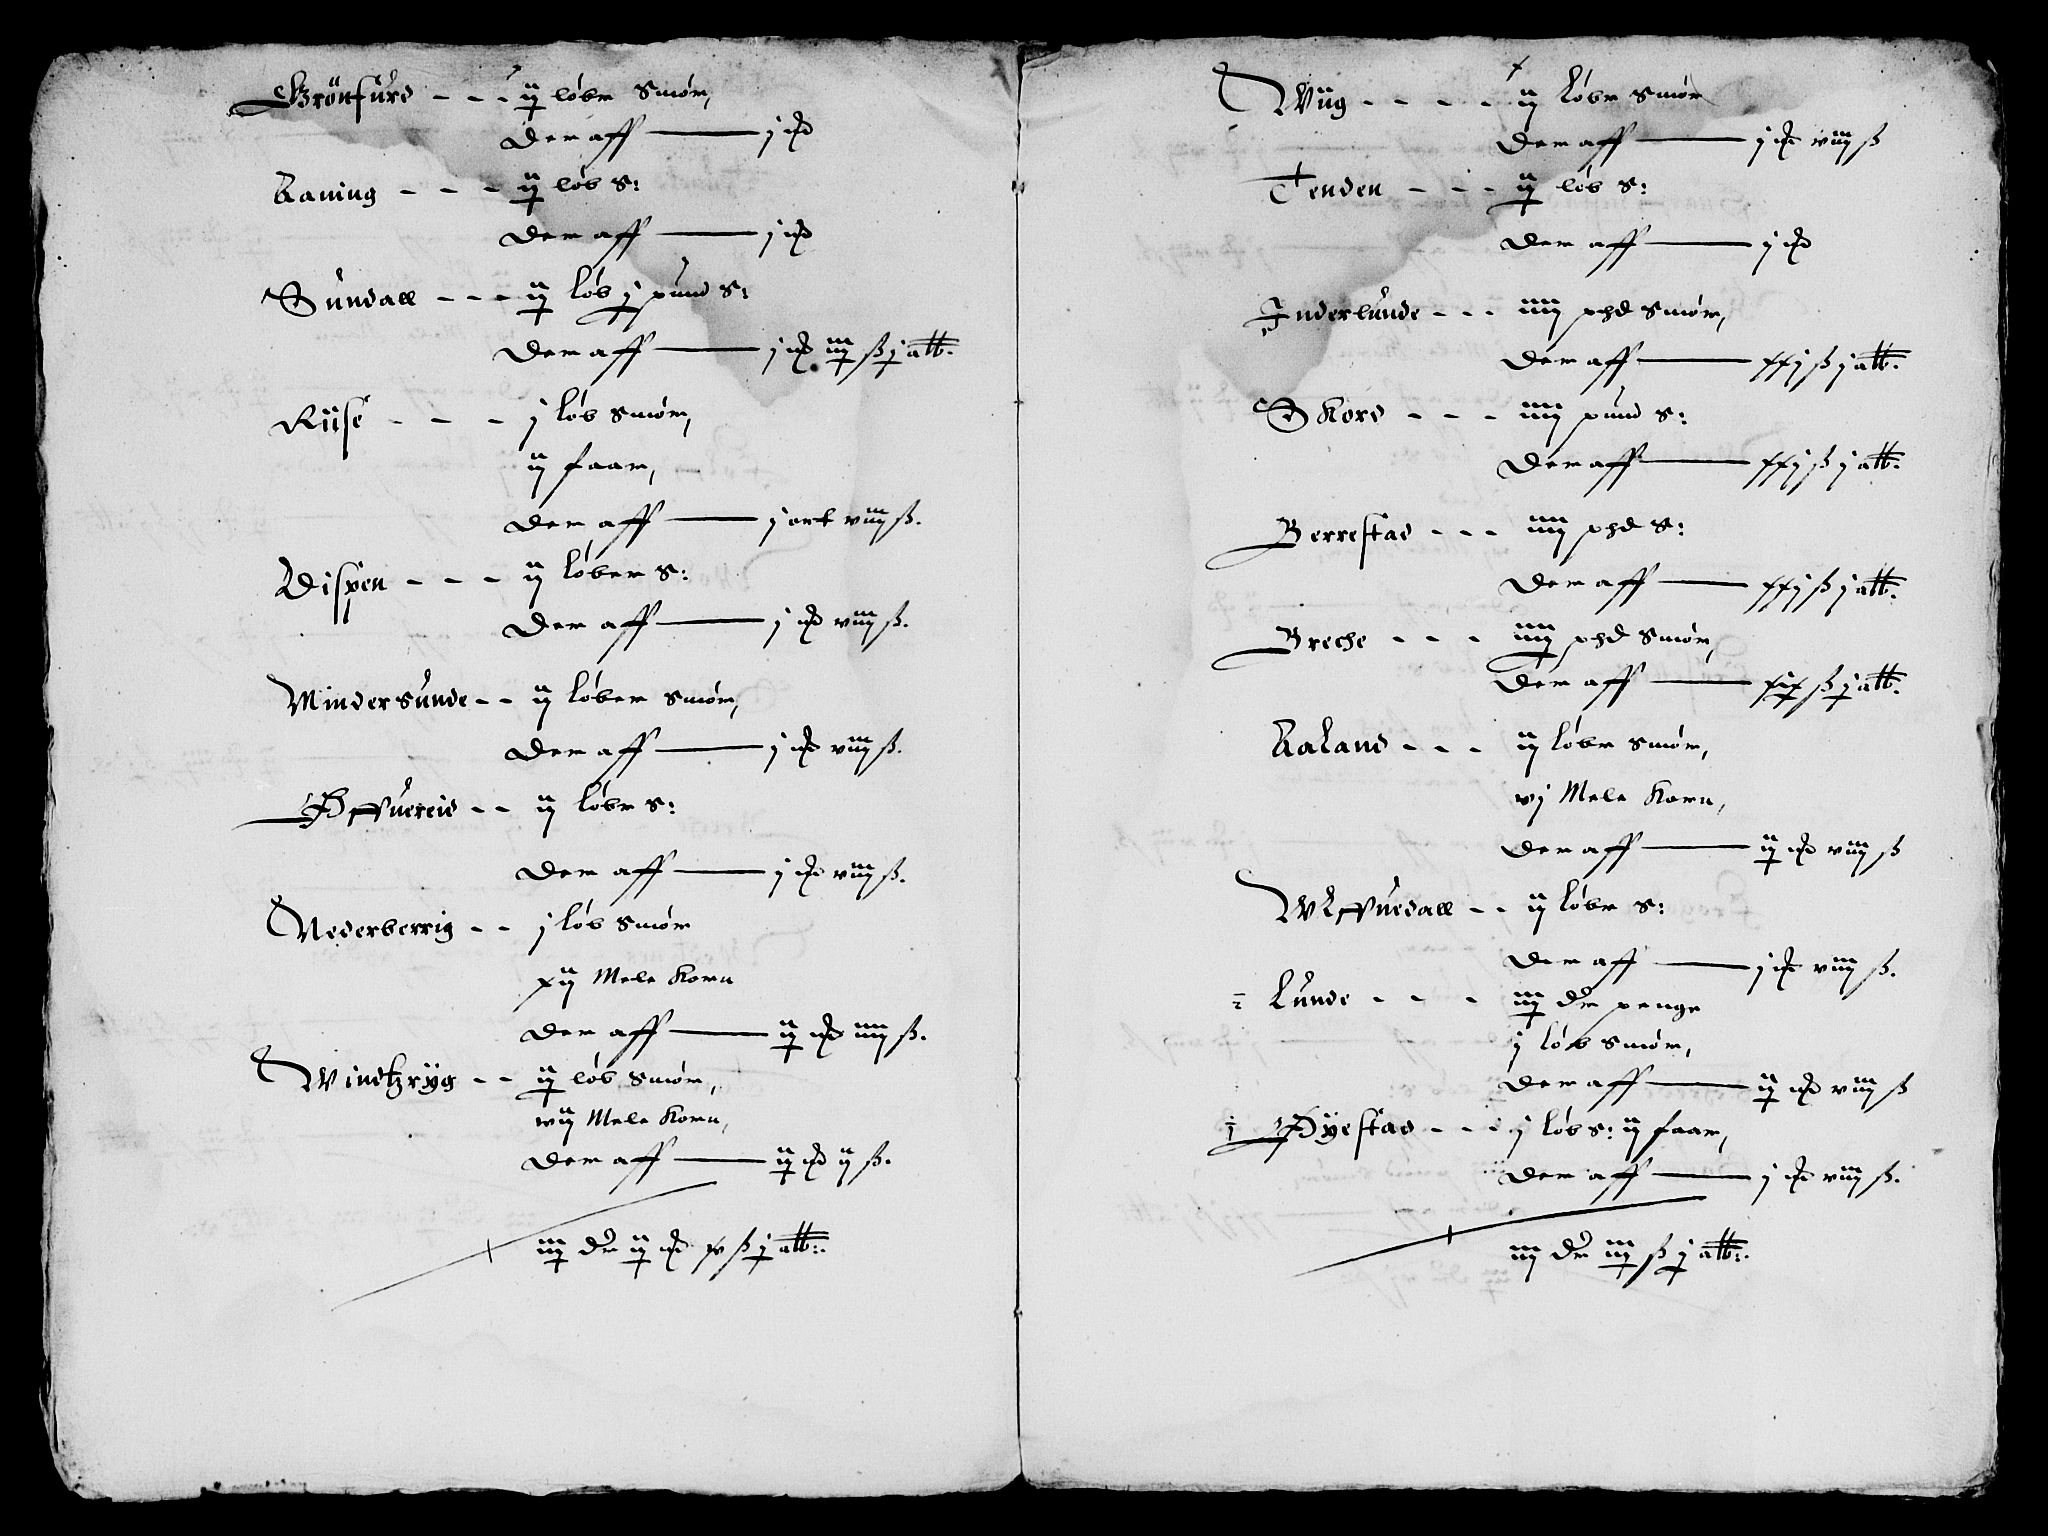 Grönfurd - - - ij løber Smør,
Der aff — j ɖ
Aaning - - - ij løb S:
Der aff — j ɖ
Sundall - - - ij løb j pund S:
Der aff — j ɖ iij ß j alb.
Riise - - - j løb Smør,
ij faar,
Der aff — j ort viij ß.
Dispen - - - ij løber S:
Der aff — j ɖ viij ß.
Mindersunde - - ij løber Smør,
Der aff — j ɖ viij ß.
Offuereid - - ij løbr S:
Der aff — j ɖ viij ß.
Nederberrig - - j løb Smør
xij Mele Korn
Der aff — ij ɖ iiij ß.
Windtzryg - - ij løb Smør,
vij Mele Korn,
Der aff — ij ɖ ij ß.
iij dlr ij ɖ xv ß j alb:.
Wiig - - - - ij løbr Smør
Der aff — j ɖ viij ß
Tenden - - - ij løb S:
Der aff — j ɖ
Inderlunde - - - iiij phd Smør,
Der aff — xxj ß j alb.
Skord - - - iiij pund S:
Der aff — xxj ß j alb.
Berrestad - - - iiij phd S:
Der aff — xxj ß j alb.
Breche - - - iiij phd Smør,
Der aff — xix ß j alb.
Aaland - - - ij løbr Smør,
vj Mele Korn,
Der aff — ij ɖ viij ß
Wlffuedall - - ij løbr S:
Der aff — j ɖ viij ß.
Lunde - - - iij dlr penge
j løb Smør,
Der aff — ij ɖ viij ß
Øyestad - - - j løb S: ij faar,
Der aff — j ɖ viij ß.
iiij dlr iiij ß j alb:.